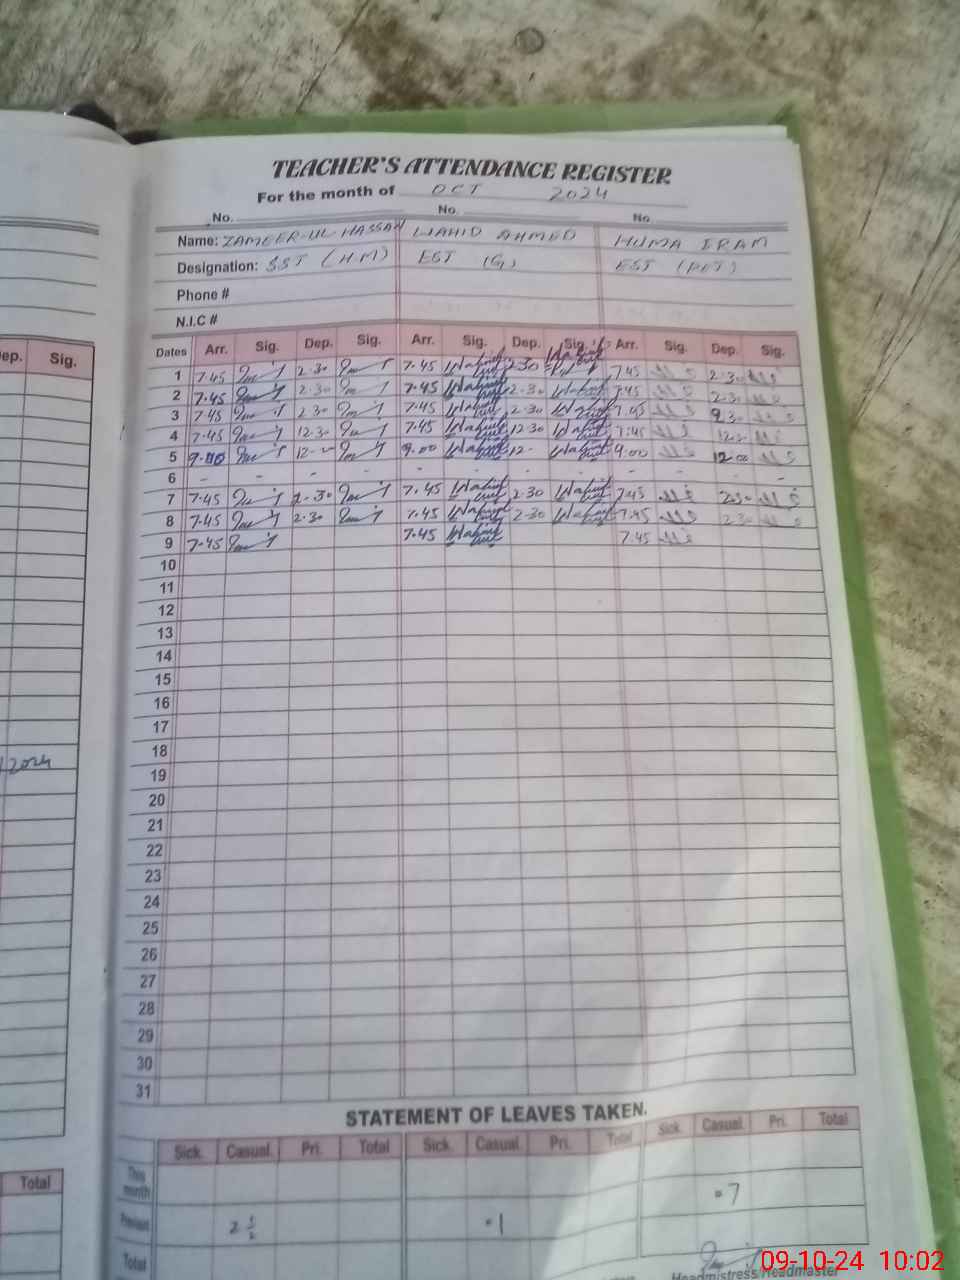 TEACHER'S ATTENDANCE REGISTER
For the month of OCT 2024
No. No. No.
Name: ZAMEER-UL HASSAN WAHID AHMED HUMA IRAM
Designation: SST (H.M) EST (G) EST (PET)
Phone #
N.I.C #
ep. Sig. Dates Arr. Sig. Dep. Sig. Arr. Sig. Dep. Sig. Arr. Sig. Dep. Sig.
1 7.45 2.30 7.45 2.30 7.45 2.30
2 7.45 2.30 7.45 2.30 7.45 2.30
3 7.45 2.30 7.45 2.30 7.45 2.30
4 7.45 12.30 7.45 12.30 7.45
5 9.00 12- 9.00 12- 9.00 12.00
6 - - - - - - - - - - - -
7 7.45 2.30 7.45 2.30 7.45 2.30
8 7.45 2.30 7.45 2.30 7.45 2.30
9 7.45 7.45 7.45
10
11
12
13
14
15
16
17
18
19
/2024
20
21
22
23
24
25
26
27
28
29
30
31
STATEMENT OF LEAVES TAKEN.
Sick. Casual Pri. Total Sick. Casual Pri. Total Sick. Casual Pri. Total
Total This month =7
Previous 2 1/2 =1
Total
Headmistress/Headmaster
09-10-24 10:02